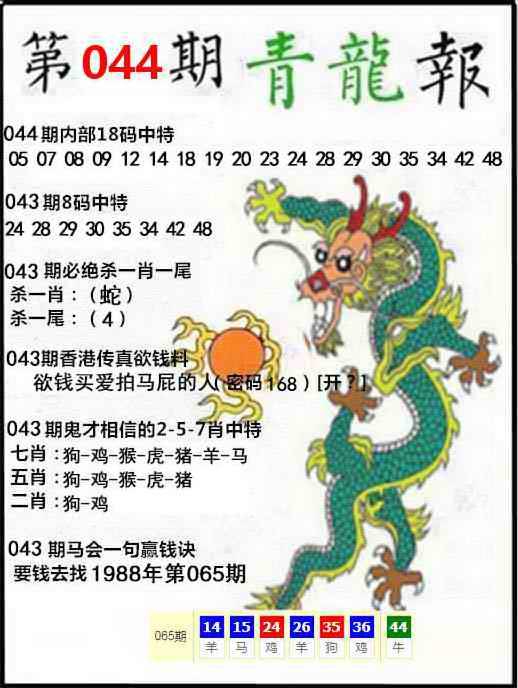 第044期 青龍報
044期内部18码中特
05 07 08 09 12 14 18 19 20 23 24 28 29 30 35 34 42 48
043期8码中特
24 28 29 30 35 34 42 48
043 期必绝杀一肖一尾
杀一肖：（蛇）
杀一尾：（4）
043期香港传真欲钱料
欲钱买爱拍马屁的人（密码168）[开？]
043期鬼才相信的2-5-7肖中特
七肖：狗-鸡-猴-虎-猪-羊-马
五肖：狗-鸡-猴-虎-猪
二肖：狗-鸡
043 期马会一句赢钱诀
要钱去找1988年第065期
065期 14 15 24 26 35 36 44
羊 马 鸡 羊 狗 鸡 牛